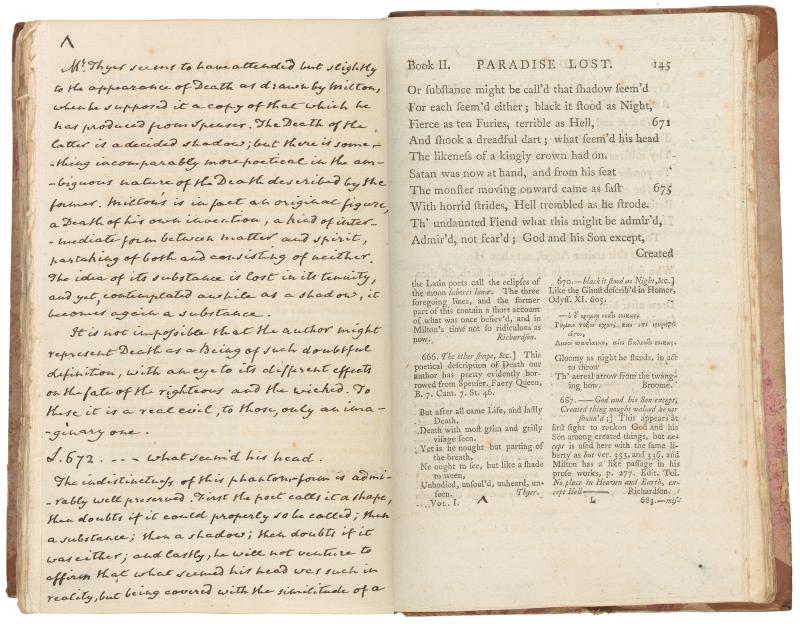 ^
Mr. Thyer seems to have attended but slightly
to the appearance of Death as drawn by Milton,
when he supposed it a copy of that which he
has produced from Spenser. The Death of the
latter is a decided shadow; but there is some-
-thing incomparably more poetical in the am-
-biguous nature of the Death described by the
former. Milton's is in fact an original figure,
a Death of his own invention, a kind of inter-
-mediate form between matter and spirit,
partaking of both and consisting of neither.
The idea of its substance is lost in its tenuity,
and yet, contemplated awhile as a shadow, it
becomes again a substance.
It is not impossible that the author might
represent Death as a Being of such doubtful
definition, with an eye to its different effects
on the fate of the righteous and the wicked. To
these it is a real evil, to those, only an ima-
-ginary one.
L. 672. - - - what seem'd his head.
The indistinctness of this phantom-form is admi-
-rably well preserved. First the poet calls it a shape,
then doubts if it could properly so be called; then
a substance; then a shadow; then doubts if it
was either; and lastly, he will not venture to
affirm that what seemed his head was such in
reality, but being covered with the similitude of a
Book II. PARADISE LOST. 145
Or substance might be call'd that shadow seem'd
For each seem'd either; black it stood as Night,
Fierce as ten Furies, terrible as Hell, 671
And shook a dreadful dart; what seem'd his head
The likeness of a kingly crown had on.
Satan was now at hand, and from his seat
The monster moving onward came as fast 675
With horrid strides, Hell trembled as he strode.
Th' undaunted Fiend what this might be admir'd,
Admir'd, not fear'd; God and his Son except,
Created
the Latin poets call the eclipses of
the moon labores lunæ. The three
foregoing lines, and the former
part of this contain a short account
of what was once believ'd, and in
Milton's time not so ridiculous as
now. Richardson.
666. The other shape, &c.] This
poetical description of Death our
author has pretty evidently bor-
rowed from Spenser. Faery Queen,
B. 7. Cant. 7. St. 46.
But after all came Life, and lastly
Death,
Death with most grim and grisly
visage seen.
Yet is he nought but parting of
the breath,
Ne ought to see, but like a shade
to ween,
Unbodied, unsoul'd, unheard, un-
seen. Thyer.
Vol. I. ^
670. — black it stood as Night, &c.]
Like the Ghost describ'd in Homer,
Odyss. XI. 605.
Gloomy as night he stands, in act
to throw
Th' aereal arrow from the twang-
ing bow. Broome.
687. — God and his Son except,
Created thing nought valued he nor
shunn'd;] This appears at
first sight to reckon God and his
Son among created things, but ex-
cept is used here with the same li-
berty as but ver. 333, and 336, and
Milton has a like passage in his
prose works, p. 277. Edit. Tol.
No place in Heaven and Earth, ex-
cept Hell — Richardson.
L 683. —mis-